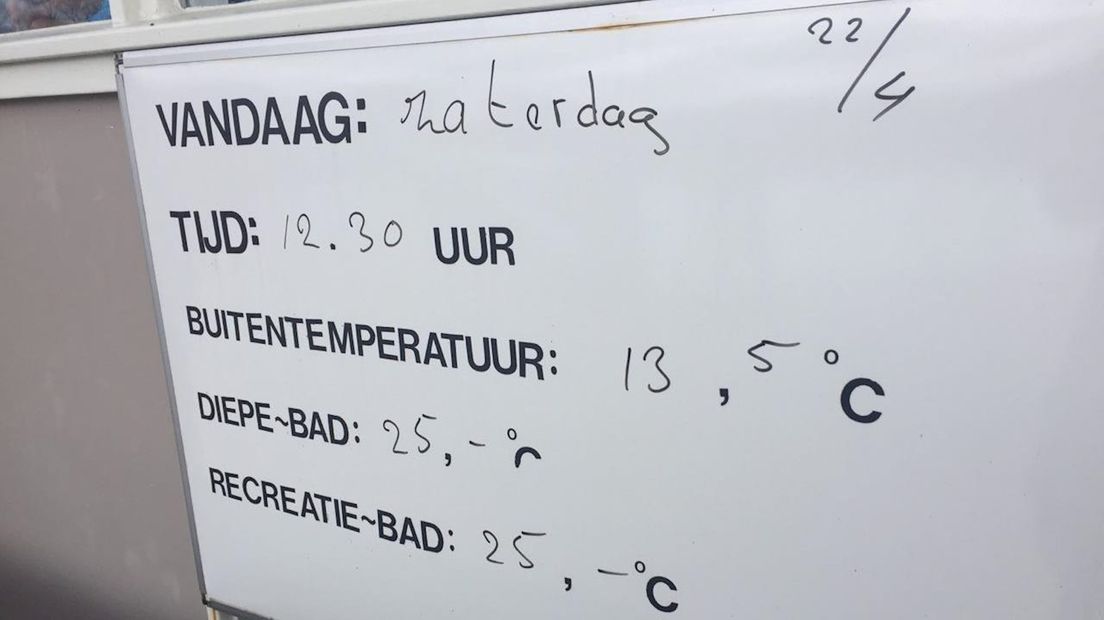 22/4
VANDAAG: zaterdag
TIJD: 12.30 UUR
BUITENTEMPERATUUR: 13,5 °C
DIEPE~BAD: 25,- °C
RECREATIE~BAD: 25,- °C